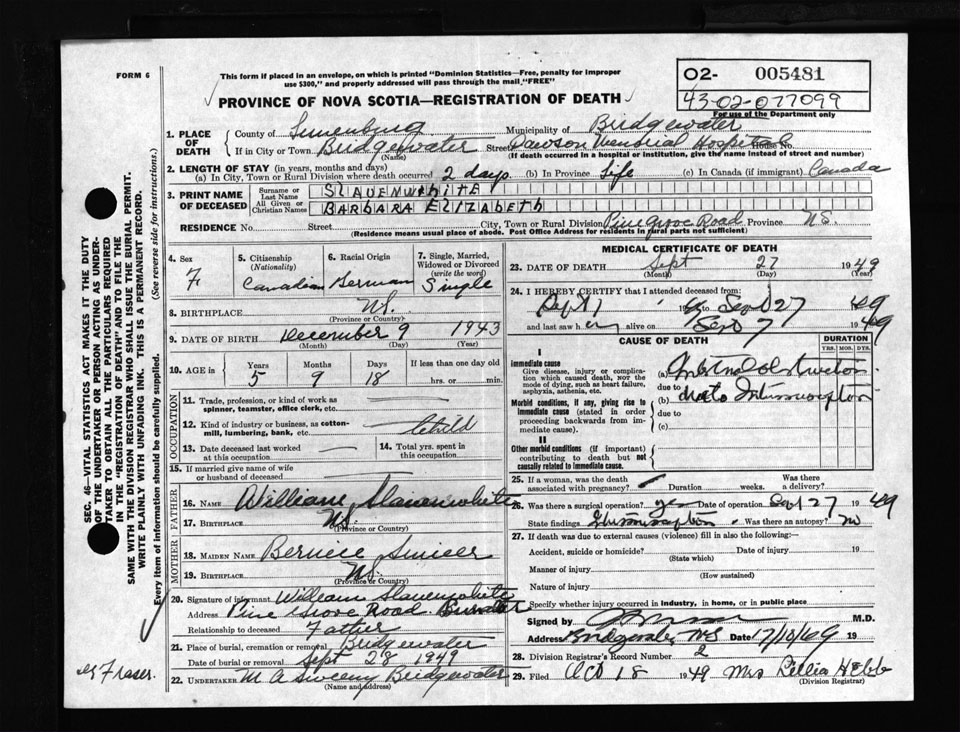 FORM 6
This form if placed in an envelope, on which is printed "Dominion Statistics—Free, penalty for improper
use $300," and properly addressed will pass through the mail "FREE"
O2- 005481
43-02-077099
For use of the Department only
PROVINCE OF NOVA SCOTIA—REGISTRATION OF DEATH
1. PLACE OF DEATH
County of Lunenburg Municipality of Bridgewater
If in City or Town Bridgewater Street Dawson Memorial Hospital House No.
(Name) (If death occurred in a hospital or institution, give the name instead of street and number)
2. LENGTH OF STAY (in years, months and days)
(a) In City, Town or Rural Division where death occurred 2 days (b) In Province Life (c) In Canada (if immigrant) Canada
3. PRINT NAME OF DECEASED
Surname or Last Name SLAUENWHITE
All Given or Christian Names BARBARA ELIZABETH
RESIDENCE No. Street City, Town or Rural Division Pine Grove Road Province N.S.
(Residence means usual place of abode. Post Office Address for residents in rural parts not sufficient)
4. Sex F
5. Citizenship (Nationality) Canadian
6. Racial Origin German
7. Single, Married, Widowed or Divorced (write the word) Single
8. BIRTHPLACE N.S.
(Province or Country)
9. DATE OF BIRTH December 9 1943
(Month) (Day) (Year)
10. AGE in Years 5 Months 9 Days 18 If less than one day old
hrs. or min.
OCCUPATION
11. Trade, profession, or kind of work as
spinner, teamster, office clerk, etc.
12. Kind of industry or business, as cotton-
mill, lumbering, bank, etc. Child
13. Date deceased last worked
at this occupation
14. Total yrs. spent in
this occupation
15. If married give name of wife
or husband of deceased
FATHER
16. NAME William Slauenwhite
17. BIRTHPLACE N.S.
(Province or Country)
MOTHER
18. MAIDEN NAME Bernice
19. BIRTHPLACE N.S.
(Province or Country)
20. Signature of informant William Slauenwhite
Address Pine Grove Road
Relationship to deceased Father
21. Place of burial, cremation or removal Bridgewater
Date of burial or removal Sept 28 1949
22. UNDERTAKER M A Sweeny Bridgewater
(Name and address)
MEDICAL CERTIFICATE OF DEATH
23. DATE OF DEATH Sept 27 1949
(Month) (Day) (Year)
24. I HEREBY CERTIFY that I attended deceased from:
Sept 27 1949
and last saw her alive on 1949
CAUSE OF DEATH
DURATION
YRS. MOS. DYS.
I
Immediate cause
Give disease, injury or complica-
tion which caused death, not the
mode of dying, such as heart failure,
asphyxia, asthenia, etc.
(a)
due to
Morbid conditions, if any, giving rise to
immediate cause (stated in order
proceeding backwards from im-
mediate cause).
(b)
due to
(c)
II
Other morbid conditions (if important)
contributing to death but not
causally related to immediate cause.
25. If a woman, was the death
associated with pregnancy? Duration weeks. Was there
a delivery?
26. Was there a surgical operation? yes Date of operation Sept 27 1949
State findings Was there an autopsy? no
27. If death was due to external causes (violence) fill in also the following:—
Accident, suicide or homicide? Date of injury 19
(State which)
Manner of injury
(How sustained)
Nature of injury
Specify whether injury occurred in industry, in home, or in public place
Signed by M.D.
Address Bridgewater N.S Date 17/10/49 19
28. Division Registrar's Record Number 2
29. Filed Oct 18 1949 Mrs Lillia Hebb
(Division Registrar)
SEC. 46—VITAL STATISTICS ACT MAKES IT THE DUTY
OF THE UNDERTAKER OR PERSON ACTING AS UNDER-
TAKER TO OBTAIN ALL THE PARTICULARS REQUIRED
IN THE "REGISTRATION OF DEATH" AND TO FILE THE
SAME WITH THE DIVISION REGISTRAR WHO SHALL ISSUE THE BURIAL PERMIT.
WRITE PLAINLY WITH UNFADING INK. THIS IS A PERMANENT RECORD.
Every item of information should be carefully supplied. (See reverse side for instructions.)
Fraser.